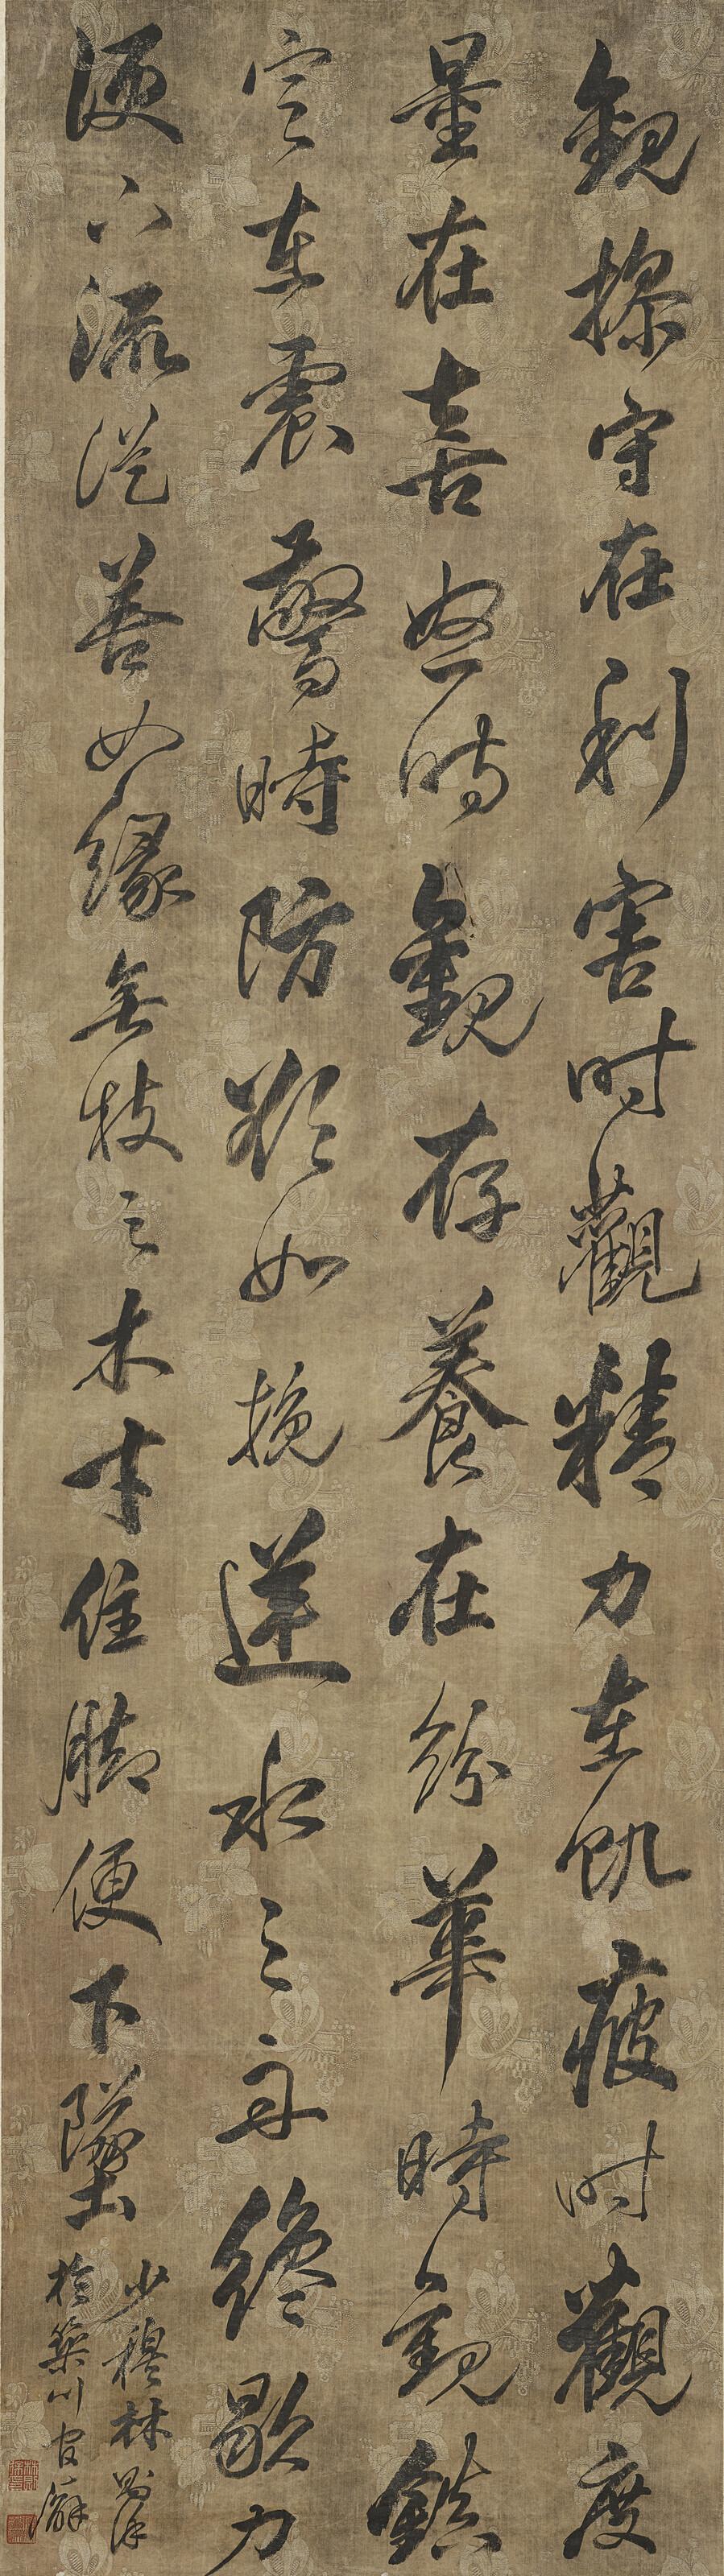 觀操守在利害时觀精力在飢疲时觀度
量在喜怒时觀存養在紛華時觀鎮
定在震驚時防欲如挽逆水之舟纔歇力
便下流從善如緣無枝之木才住脚便下墜
少穆林則徐
於築川官廨